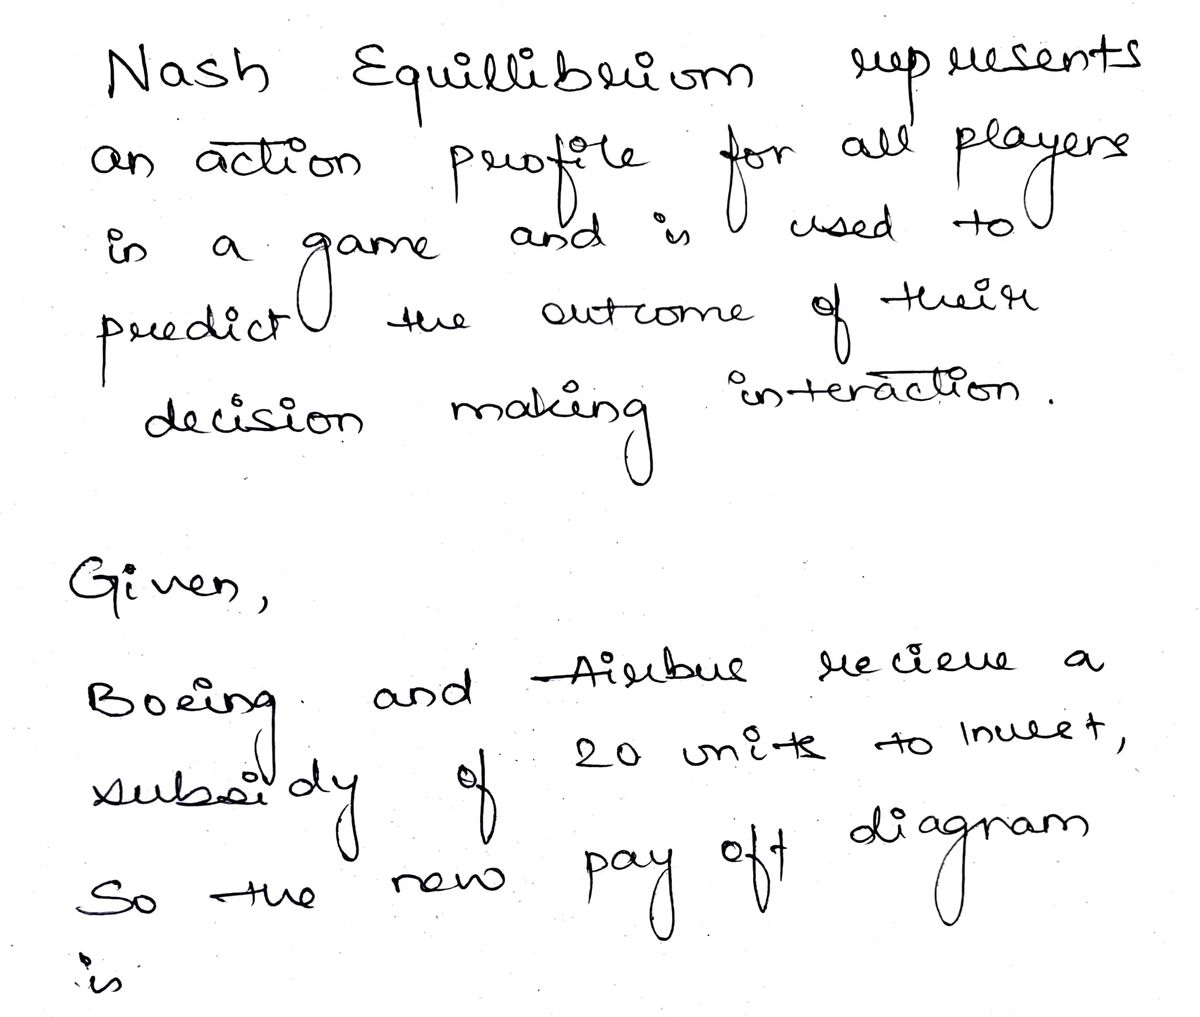 Nash Equillibrium represents
an action profile for all players
in a game and is used to
predict the outcome of their
decision making interaction.
Given,
Boeing and Airbus recieve a
subsidy of 20 units to Invest,
So the new pay off diagram
is